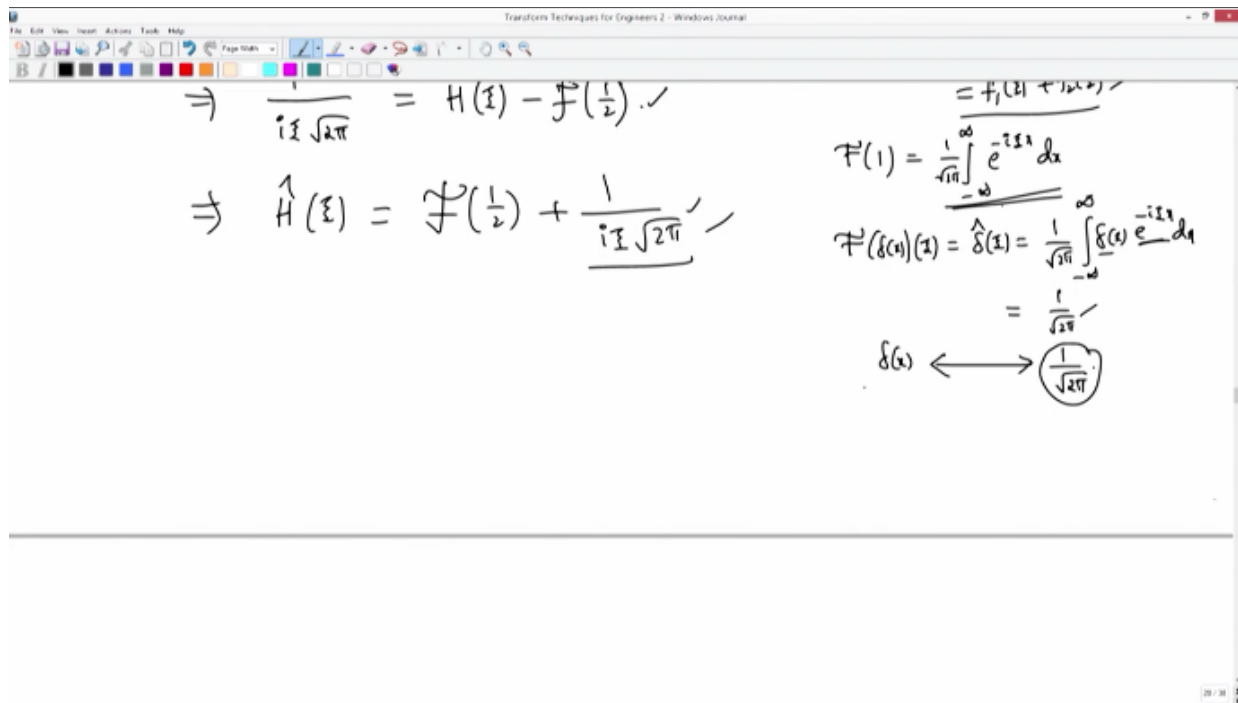 Transform Techniques for Engineers 2 - Windows Journal
File Edit View Insert Actions Tools Help
Page Width
B I
⇒ 1/(iξ√2π) = H(ξ) − F(1/2). ✓
⇒ Ĥ(ξ) = F(1/2) + 1/(iξ√2π) ✓ ✓
F(1) = 1/√2π ∫_{-∞}^{∞} e^{-iξx} dx
F(δ(x))(ξ) = δ̂(ξ) = 1/√2π ∫_{-∞}^{∞} δ(x) e^{-iξx} dx
= 1/√2π ✓
δ(x) ⟷ 1/√2π
20 / 38